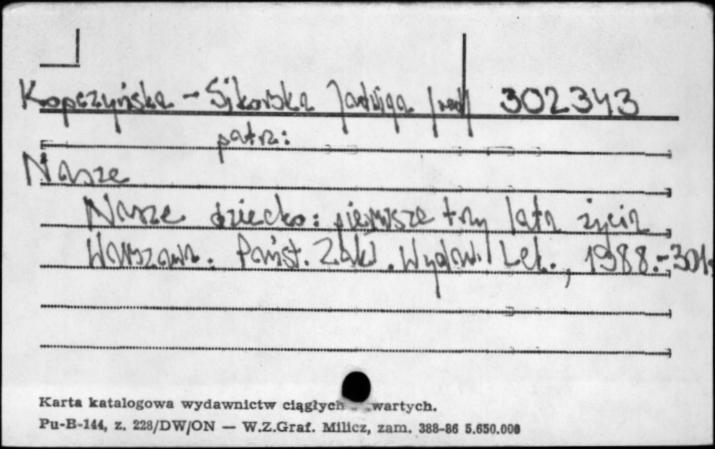 Kopczyńska - Sikorska Jadwiga [red] 302343
patrz:
Nasze
Nasze dziecko: pierwsze trzy lata życia
Warszawa. Państ. Zakł. Wydawn. Lek., 1988.-301s
Karta katalogowa wydawnictw ciągłych wartych.
Pu-B-144, z. 228/DW/ON — W.Z.Graf. Milicz, zam. 388-86 5.650.000